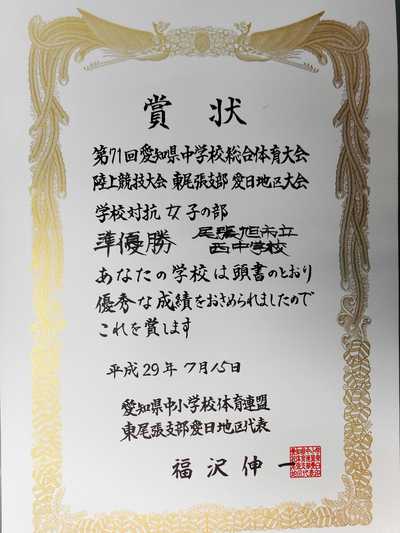 賞状
第71回愛知県中学校総合体育大会
陸上競技大会 東尾張支部 愛日地区大会
学校対抗 女子の部
準優勝 尾張旭市立
西中学校
あなたの学校は頭書のとおり
優秀な成績をおさめられましたので
これを賞します
平成29年7月15日
愛知県中小学校体育連盟
東尾張支部愛日地区代表
福沢伸一